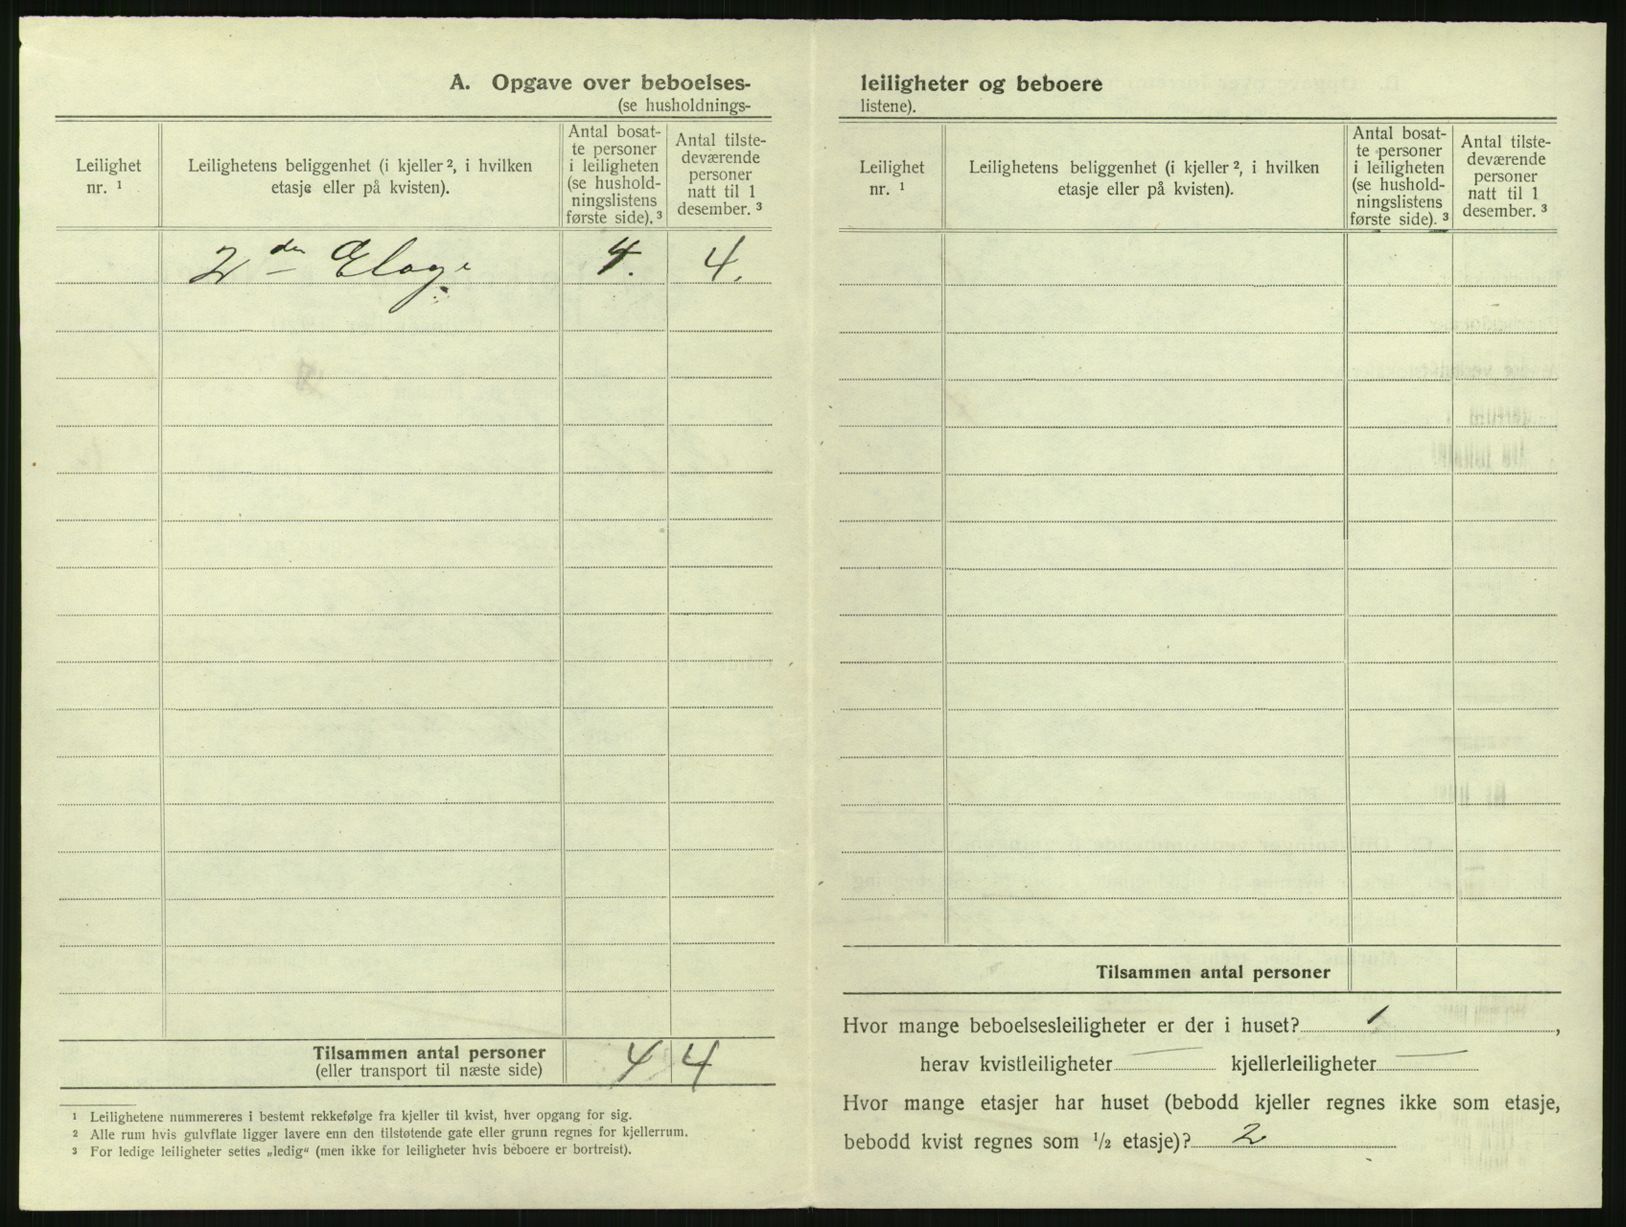 A. Opgave over beboelses-
(se husholdnings-
Leilighet nr. ¹
Leilighetens beliggenhet (i kjeller ², i hvilken etasje eller på kvisten).
Antal bosat-
te personer
i leiligheten
(se hushold-
ningslistens
første side). ³
Antal tilste-
deværende
personer
natt til 1
desember. ³
2den Etage 4. 4.
Tilsammen antal personer 4 4
(eller transport til næste side)
¹ Leilighetene nummereres i bestemt rekkefølge fra kjeller til kvist, hver opgang for sig.
² Alle rum hvis gulvflate ligger lavere enn den tilstøtende gate eller grunn regnes for kjellerrum.
³ For ledige leiligheter settes „ledig“ (men ikke for leiligheter hvis beboere er bortreist).
leiligheter og beboere
listene).
Leilighet nr. ¹
Leilighetens beliggenhet (i kjeller ², i hvilken etasje eller på kvisten).
Antal bosat-
te personer
i leiligheten
(se hushold-
ningslistens
første side). ³
Antal tilste-
deværende
personer
natt til 1
desember. ³
Tilsammen antal personer
Hvor mange beboelsesleiligheter er der i huset? 1,
herav kvistleiligheter — kjellerleiligheter —
Hvor mange etasjer har huset (bebodd kjeller regnes ikke som etasje,
bebodd kvist regnes som ½ etasje)? 2